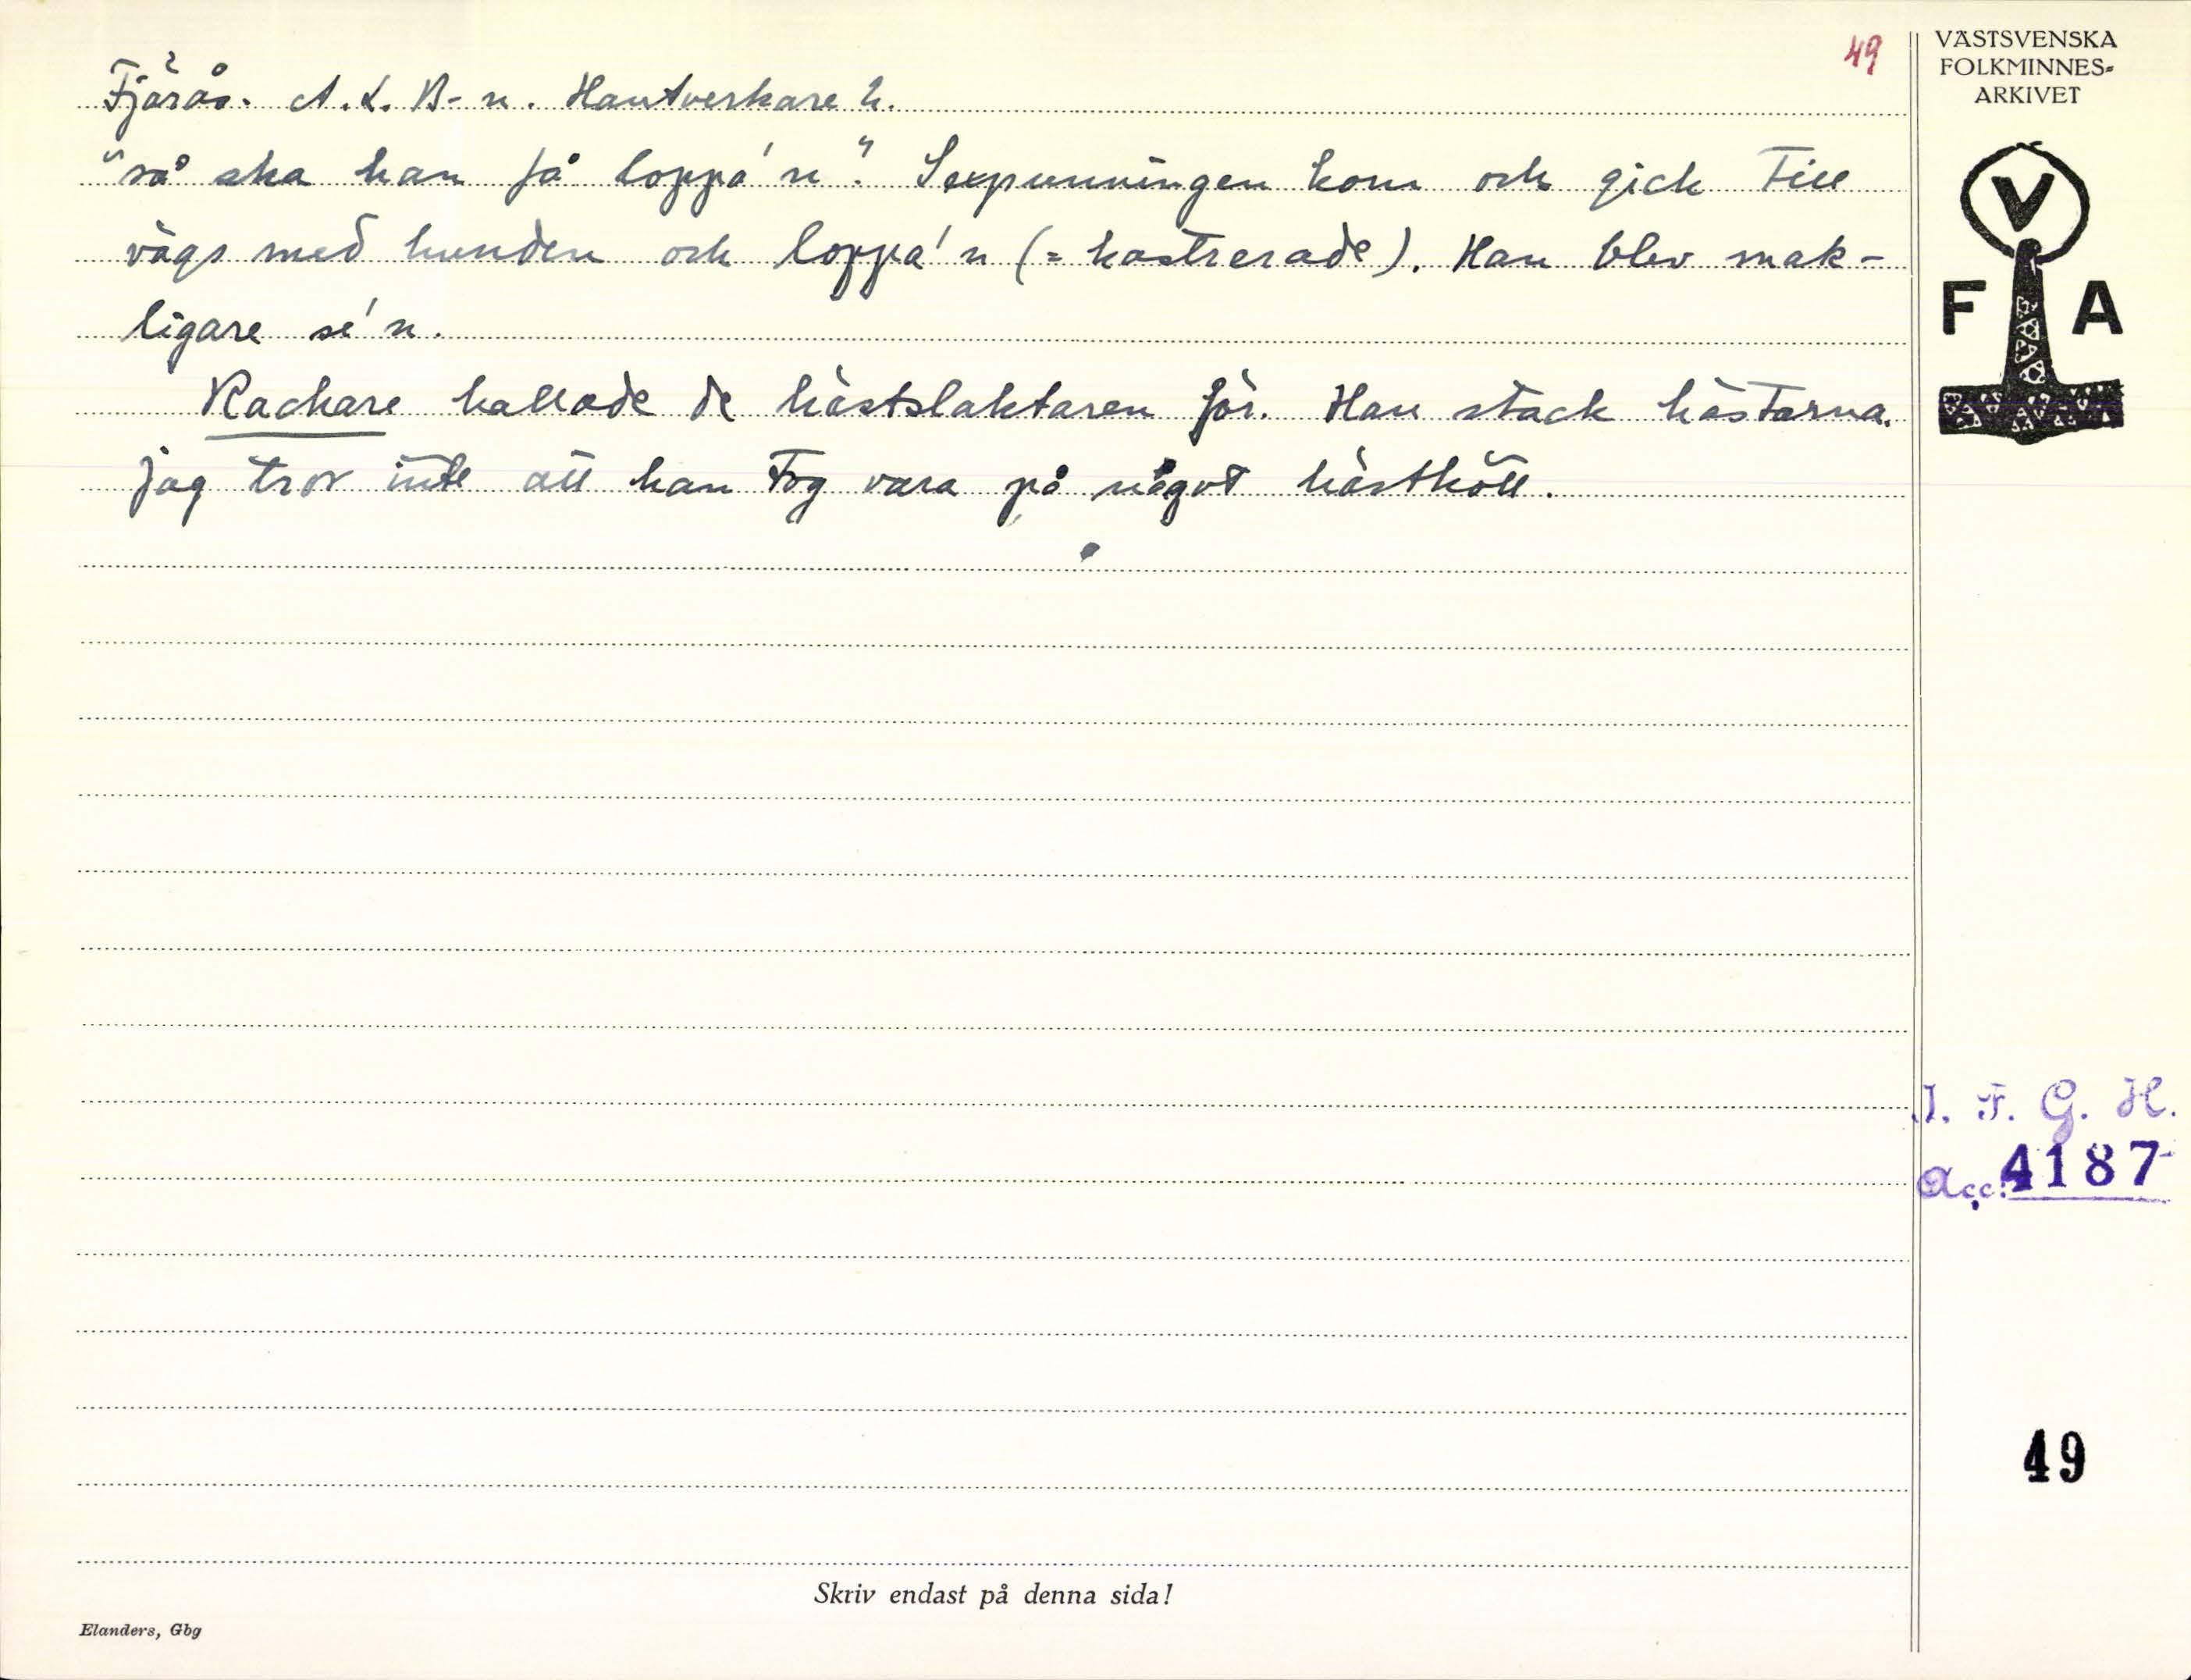 49
Fjärås. A. L. B-n. Hantverkare 2.
"så ska han få loppa'n". Sexpunningen kom och gick till
vägs med hunden och loppa'n (= kastrerade). Han blev mak-
ligare se'n.
Rackare kallade de hästslaktaren för. Han stack hästarna.
jag tror inte att han tog vara på något hästkött.
Skriv endast på denna sida!
Elanders, Gbg
VÄSTSVENSKA
FOLKMINNES-
ARKIVET
V
F A
I. F. G. H.
Acc. 4187
49